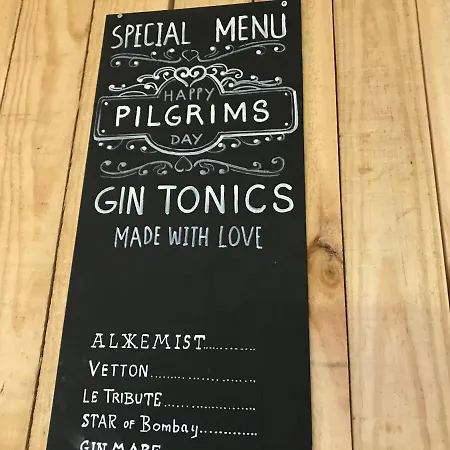 SPECIAL MENU
HAPPY
PILGRIMS
DAY
GIN TONICS
MADE WITH LOVE
ALKKEMIST..............
VETTON......................
LE TRIBUTE...................
STAR of Bombay............
GIN MARE